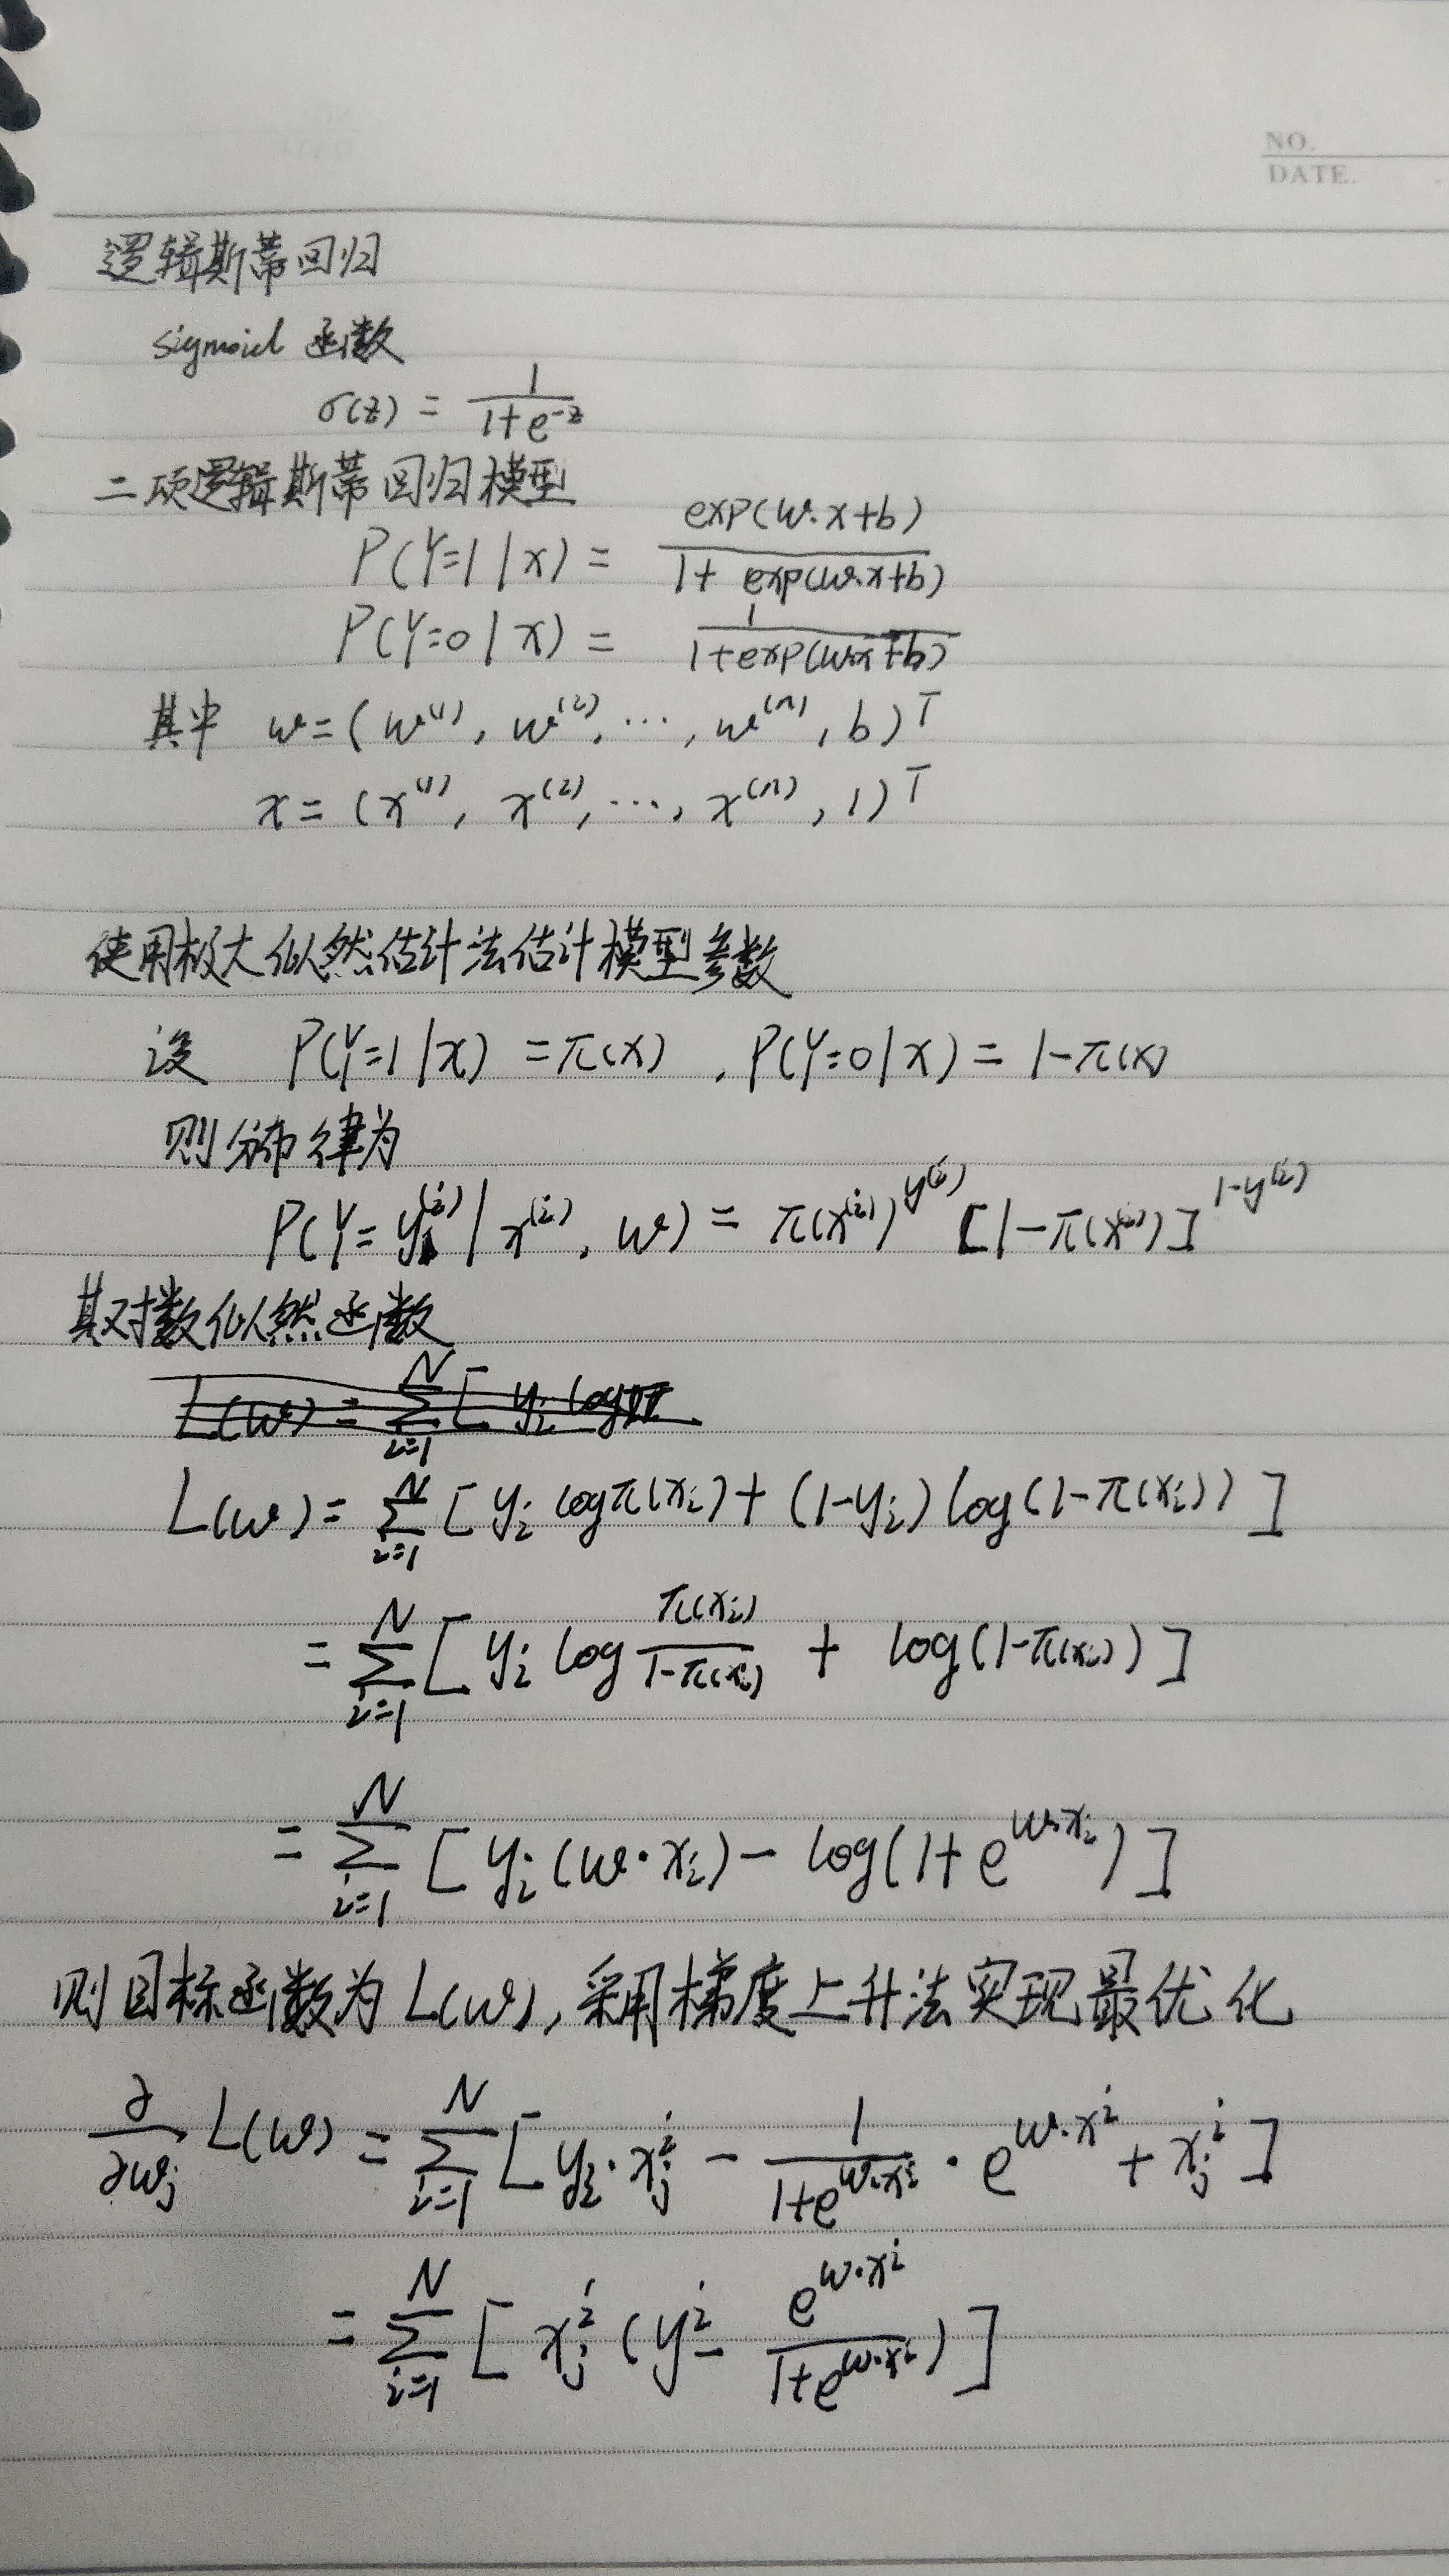 NO.
DATE.
逻辑斯蒂回归
sigmoid 函数
σ(z) = 1/(1+e^{-z})
二项逻辑斯蒂回归模型
P(Y=1|x) = exp(w·x+b)/(1+exp(w·x+b))
P(Y=0|x) = 1/(1+exp(w·x+b))
其中 w=(w^{(1)}, w^{(2)}, ⋯, w^{(n)}, b)^T
x=(x^{(1)}, x^{(2)}, ⋯, x^{(n)}, 1)^T
使用极大似然估计法估计模型参数
设 P(Y=1|x) = π(x), P(Y=0|x) = 1-π(x)
则分布律为
P(Y=y^{(i)}|x^{(i)}, w) = π(x^{(i)})^{y^{(i)}} [1-π(x^{(i)})]^{1-y^{(i)}}
其对数似然函数
L(w) = ∑_{i=1}^{N} [y_i log π
L(w) = ∑_{i=1}^{N} [y_i log π(x_i) + (1-y_i) log(1-π(x_i))]
= ∑_{i=1}^{N} [y_i log π(x_i)/(1-π(x_i)) + log(1-π(x_i))]
= ∑_{i=1}^{N} [y_i(w·x_i) - log(1+e^{w·x_i})]
则目标函数为 L(w), 采用梯度上升法实现最优化
∂/∂w_j L(w) = ∑_{i=1}^{N} [y_i·x_j^i - 1/(1+e^{w·x^i}) · e^{w·x^i} + x_j^i]
= ∑_{i=1}^{N} [x_j^i (y^i - e^{w·x^i}/(1+e^{w·x^i}))]